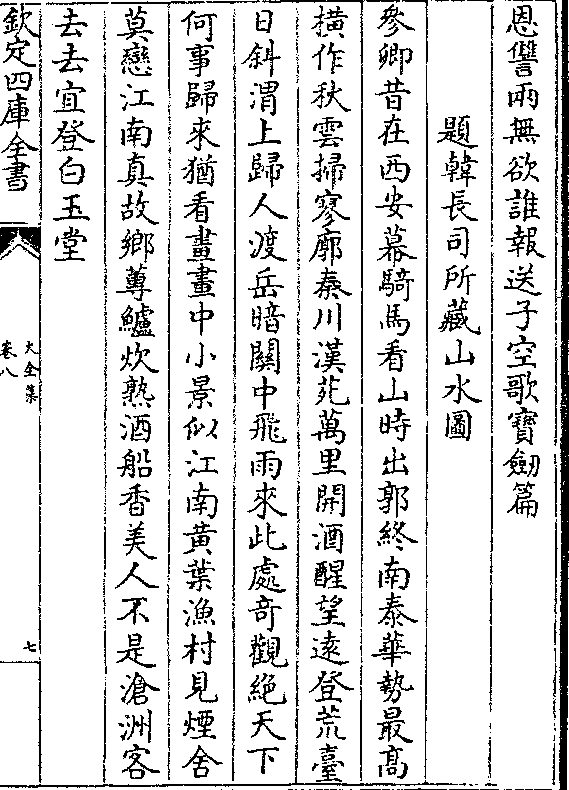 恩讐兩無欲誰報送子空歌寶劒篇
題韓長司所藏山水圖
參卿昔在西安幕騎馬看山時出郭終南泰華勢最高
掃作秋雲掃寥廓秦川漢苑萬里開酒醒望遠登荒臺
日斜渭上歸人渡岳暗關中飛雨來此處奇觀絕天下
何事歸來猶看畫畫中小景似江南黃葉漁村見煙舍
莫戀江南真故鄉蓴鱸炊熟酒船香美人不是滄洲客
去去宜登白玉堂
欽定四庫全書
大全集
卷八
七